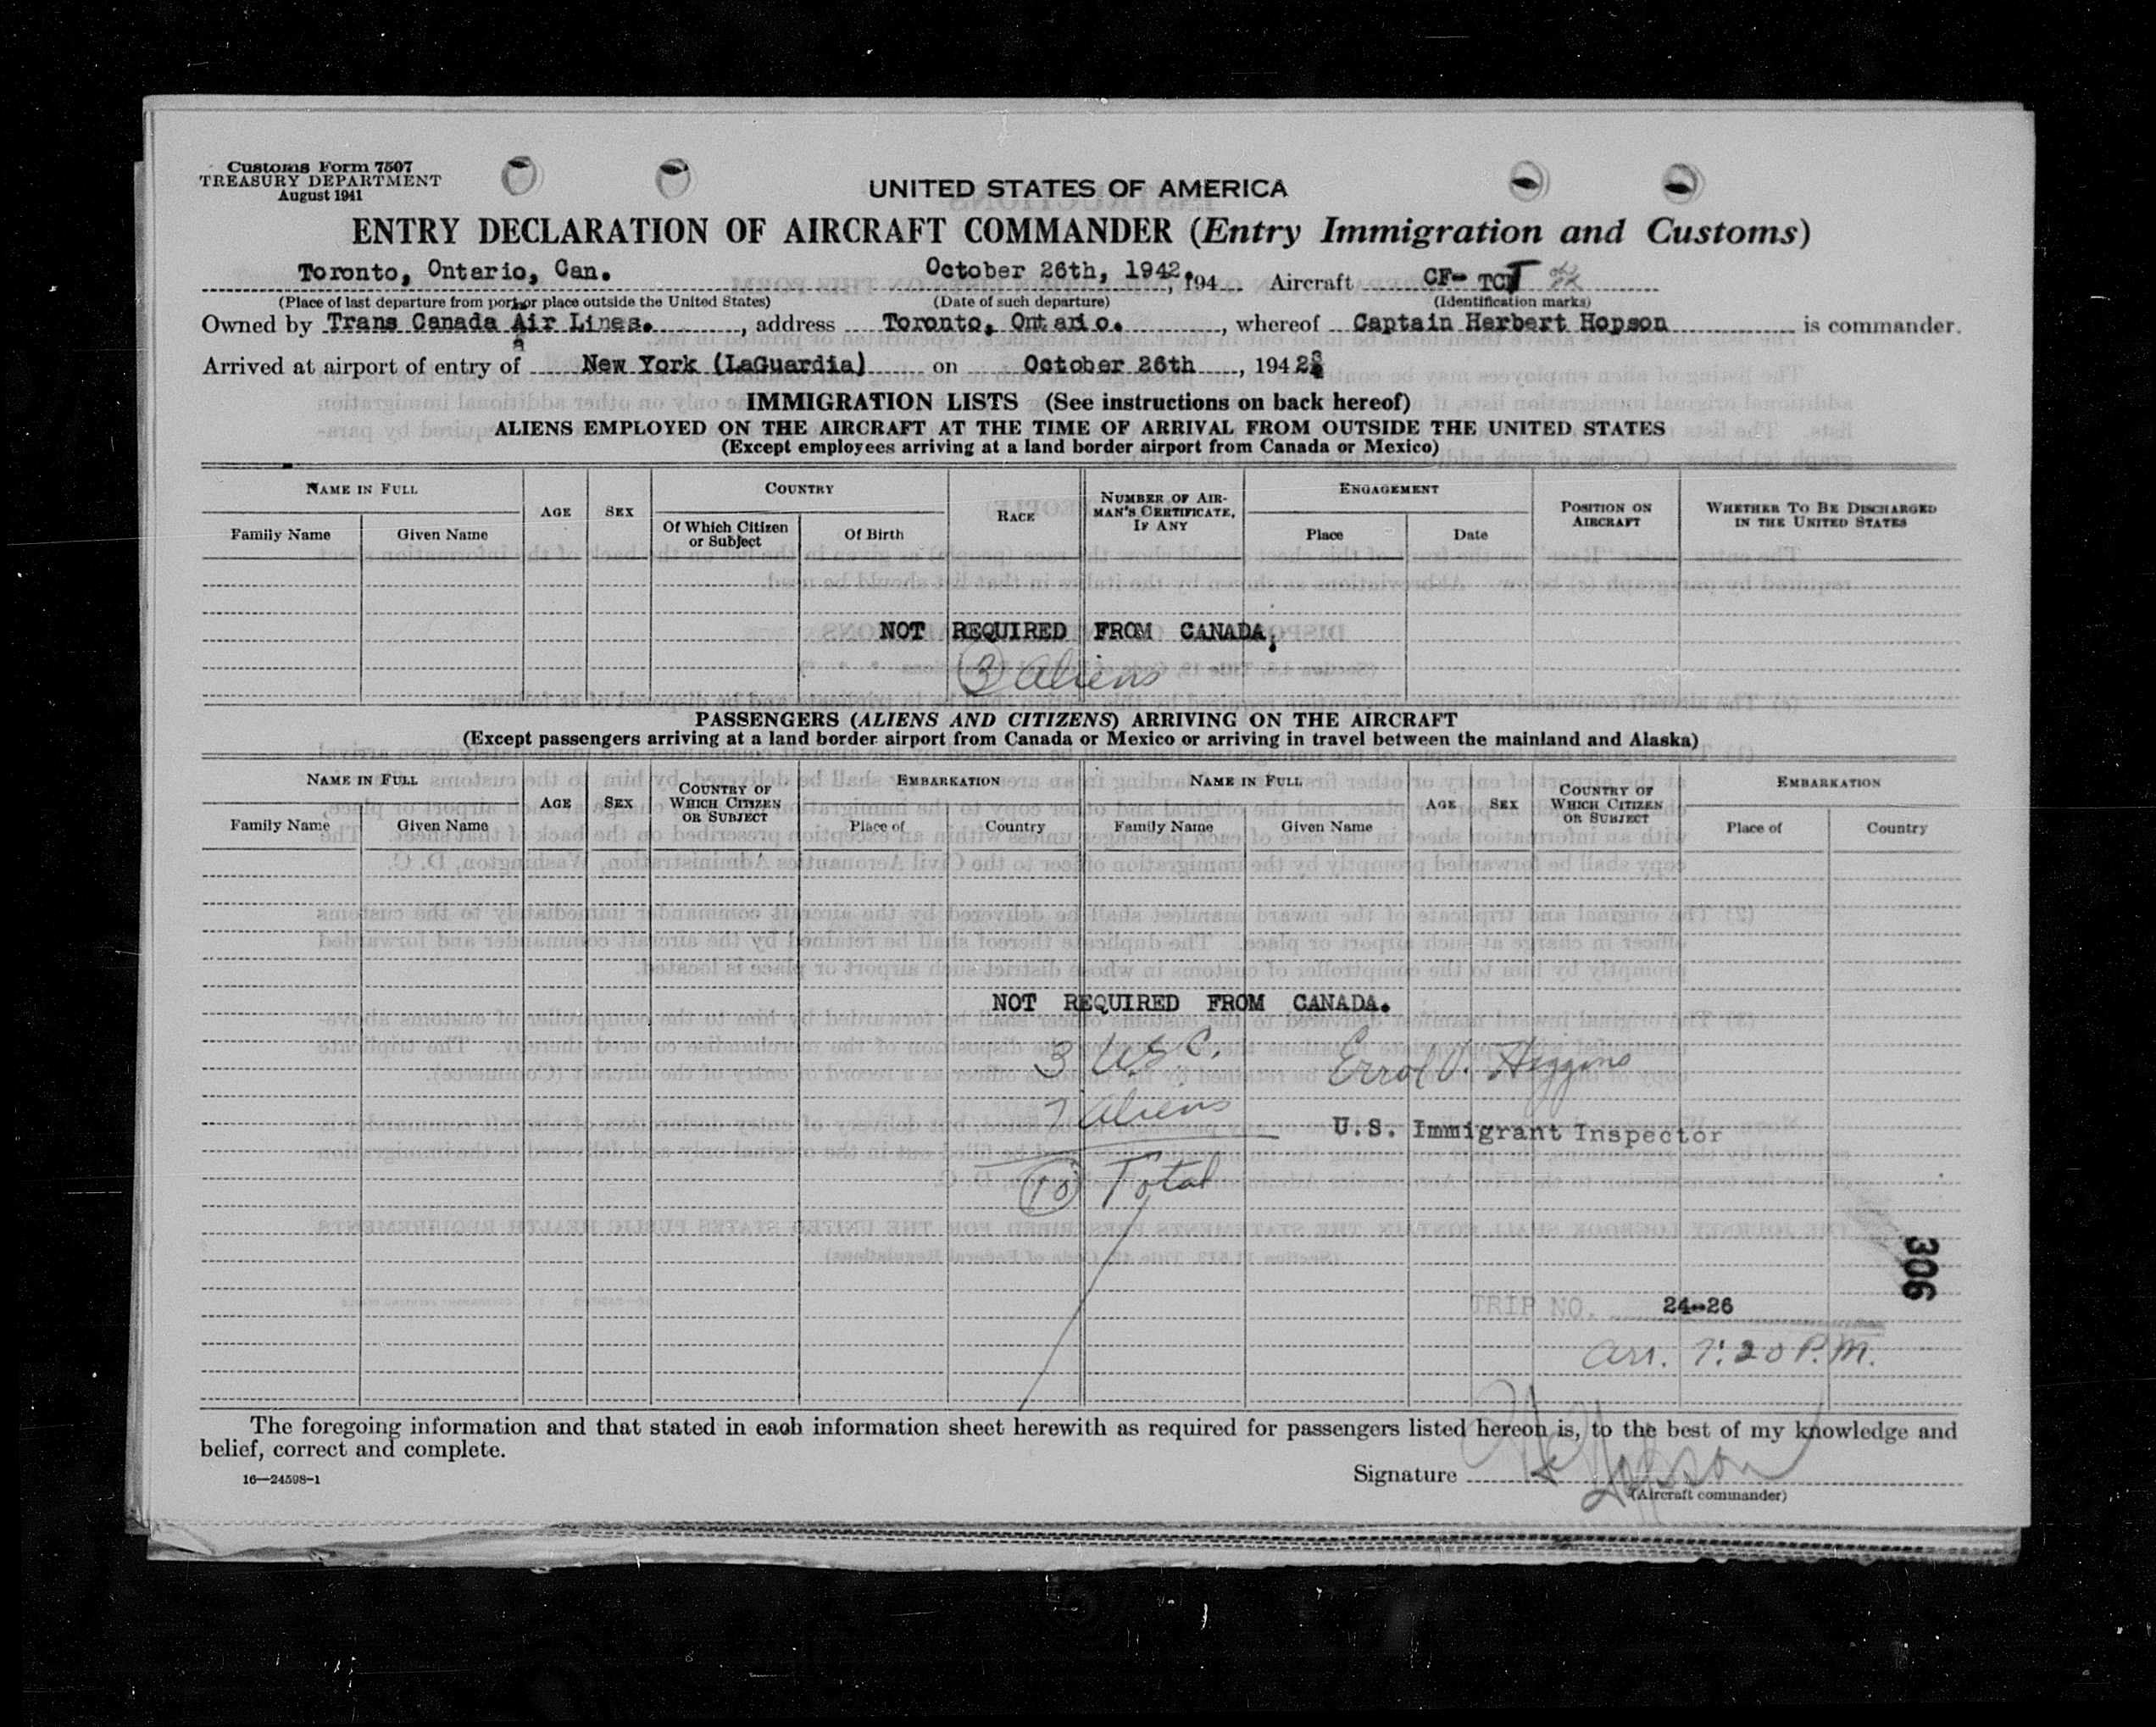 Customs Form 7507
TREASURY DEPARTMENT
August 1941
UNITED STATES OF AMERICA
ENTRY DECLARATION OF AIRCRAFT COMMANDER (Entry Immigration and Customs)
Toronto, Ontario, Can. October 26th, 1942. , 194 Aircraft CF- TCT
(Place of last departure from port or place outside the United States) (Date of such departure) (Identification marks)
Owned by Trans Canada Air Lines. , address Toronto, Ontario. , whereof Captain Herbert Hopson is commander.
Arrived at airport of entry of New York (LaGuardia) on October 26th , 1942
IMMIGRATION LISTS (See instructions on back hereof)
ALIENS EMPLOYED ON THE AIRCRAFT AT THE TIME OF ARRIVAL FROM OUTSIDE THE UNITED STATES
(Except employees arriving at a land border airport from Canada or Mexico)
NAME IN FULL AGE SEX COUNTRY RACE NUMBER OF AIRMAN'S CERTIFICATE, IF ANY ENGAGEMENT POSITION ON AIRCRAFT WHETHER TO BE DISCHARGED IN THE UNITED STATES
Family Name Given Name Of Which Citizen or Subject Of Birth Place Date
NOT REQUIRED FROM CANADA.
3 aliens
PASSENGERS (ALIENS AND CITIZENS) ARRIVING ON THE AIRCRAFT
(Except passengers arriving at a land border airport from Canada or Mexico or arriving in travel between the mainland and Alaska)
NAME IN FULL AGE SEX COUNTRY OF WHICH CITIZEN OR SUBJECT EMBARKATION NAME IN FULL AGE SEX COUNTRY OF WHICH CITIZEN OR SUBJECT EMBARKATION
Family Name Given Name Place of Country Family Name Given Name Place of Country
NOT REQUIRED FROM CANADA.
3 U.S.C. Errol V. Higgins
7 aliens
U.S. Immigrant Inspector
10 Total
306
TRIP NO. 24-26
arr. 7:20 P.M.
The foregoing information and that stated in each information sheet herewith as required for passengers listed hereon is, to the best of my knowledge and
belief, correct and complete.
16—24598-1
Signature H Hopson
(Aircraft commander)